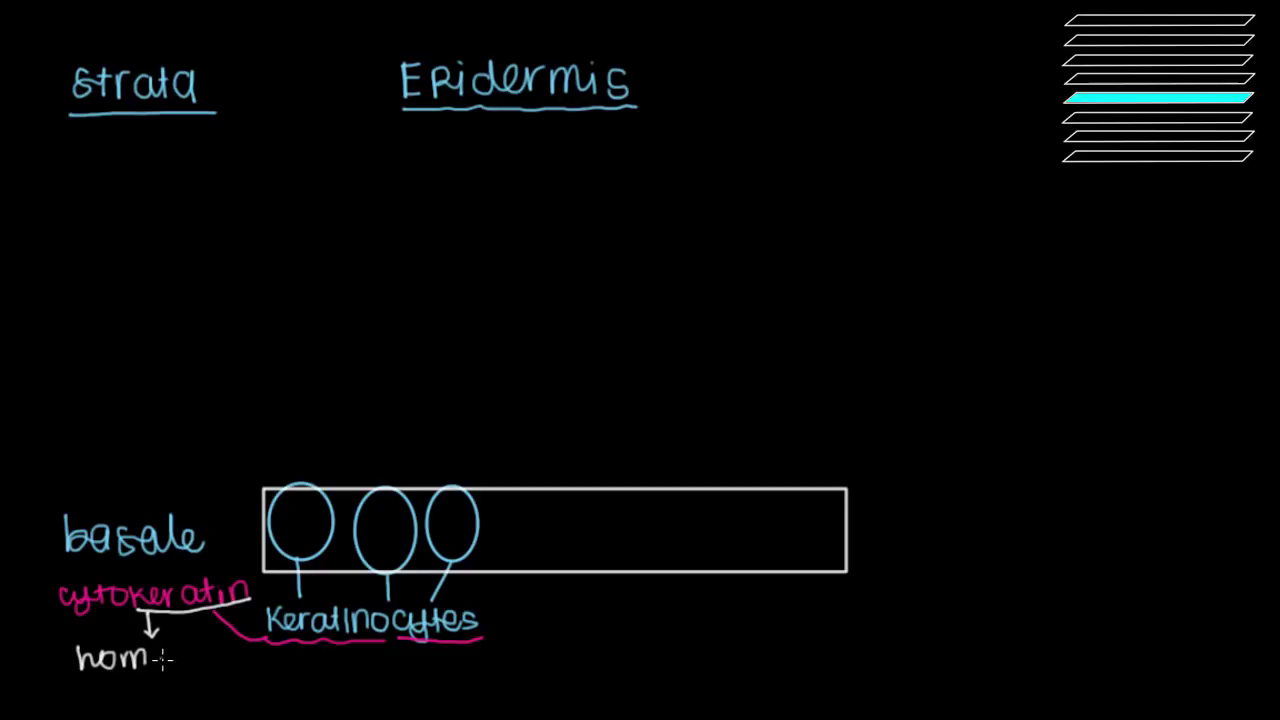 strata Epidermis
basale
cytokeratin
Keratinocytes
hom